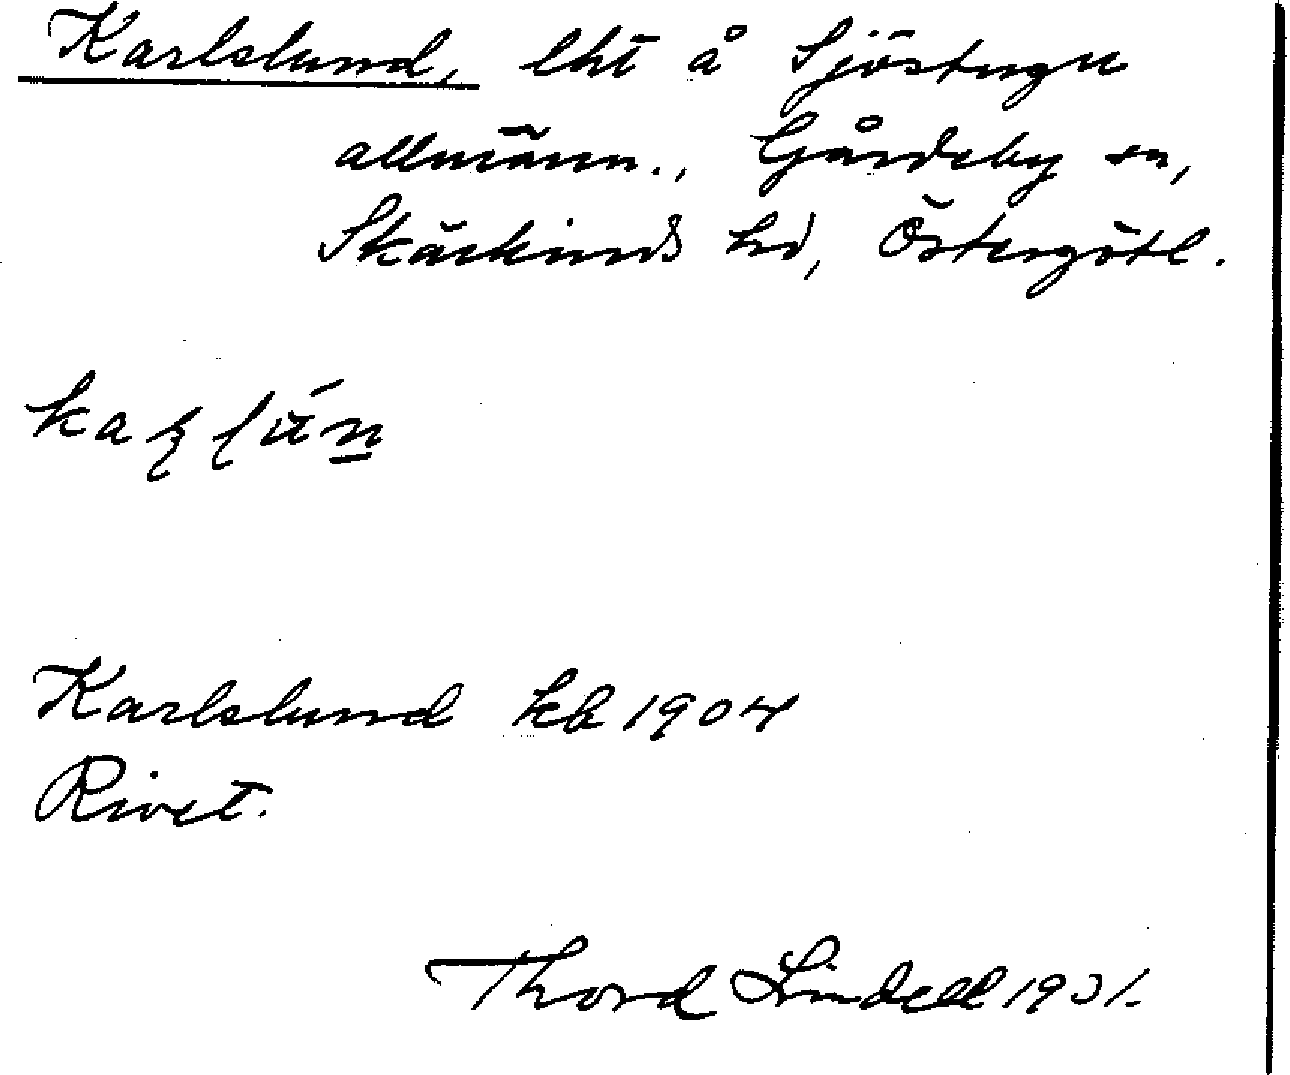 Karlslund, lht å Sjöstugu
allmänn., Gårdeby sn,
Skärkinds hd, Östergötl.
Karlslund kb 1904
Rivet.
Thord Lindell 1931.